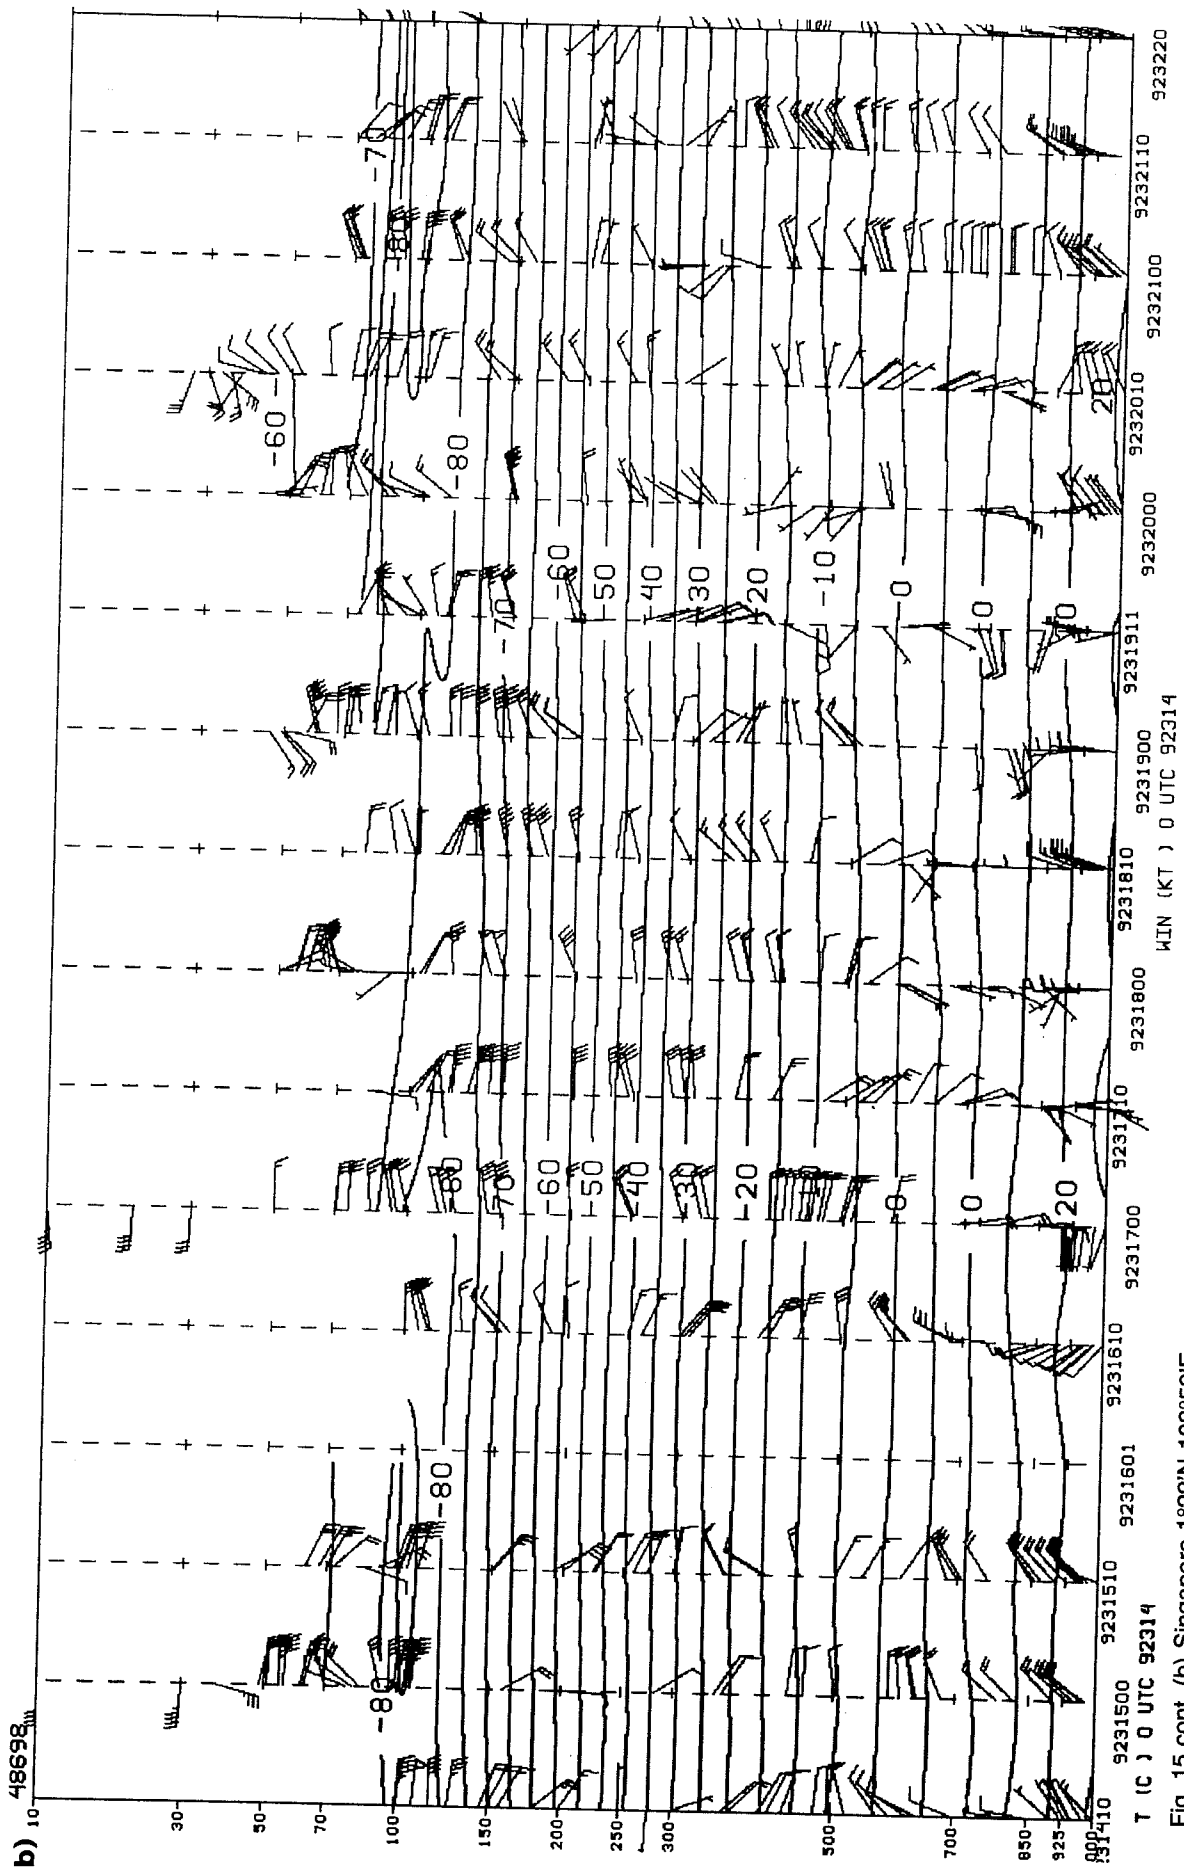 b)
48698
10
30
50
70
100
150
200
250
300
500
700
850
925
-80
-80
-80
-70
-60
-50
-40
-30
-20
0
20
-60
-80
-70
-60
-50
-40
-30
-20
-10
0
-7
-80
20
9231500
9231510
9231601
9231610
9231700
9231800
9231810
9231900
9231911
9232000
9232010
9232100
9232110
923220
T (C ) 0 UTC 92314
WIN (KT ) 0 UTC 92314
Fig. 15 cont. (b) Singapore